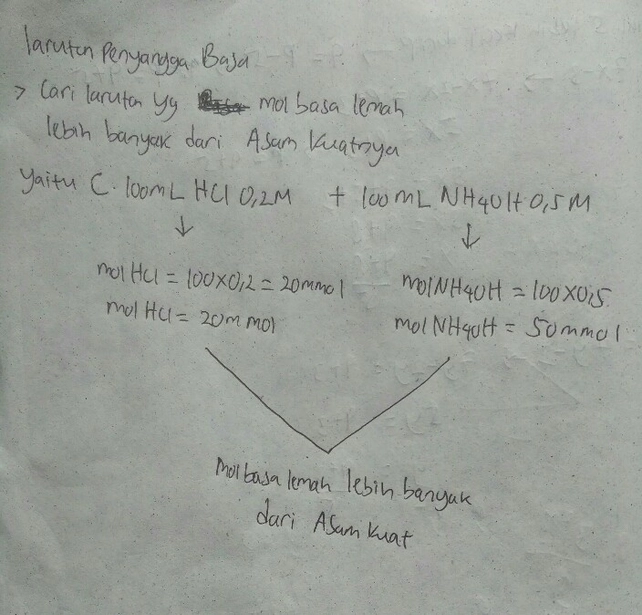 larutan Penyangga Basa
> Cari larutan yg mol basa lemah
lebih banyak dari Asam Kuatnya
yaitu C. 100mL HCl 0,2M + 100mL NH4OH 0,5M
↓ ↓
mol HCl = 100x0,2 = 20mmol
mol HCl = 20mmol
mol NH4OH = 100x0,5
mol NH4OH = 50mmol
Mol basa lemah lebih banyak
dari Asam Kuat